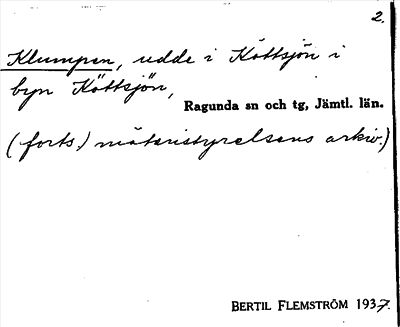 2.
Klumpen, udde i Köttsjön i
byn Köttsjön,
Ragunda sn och tg, Jämtl. län.
(forts.) mäteristyrelsens arkiv.)
BERTIL FLEMSTRÖM 1937.